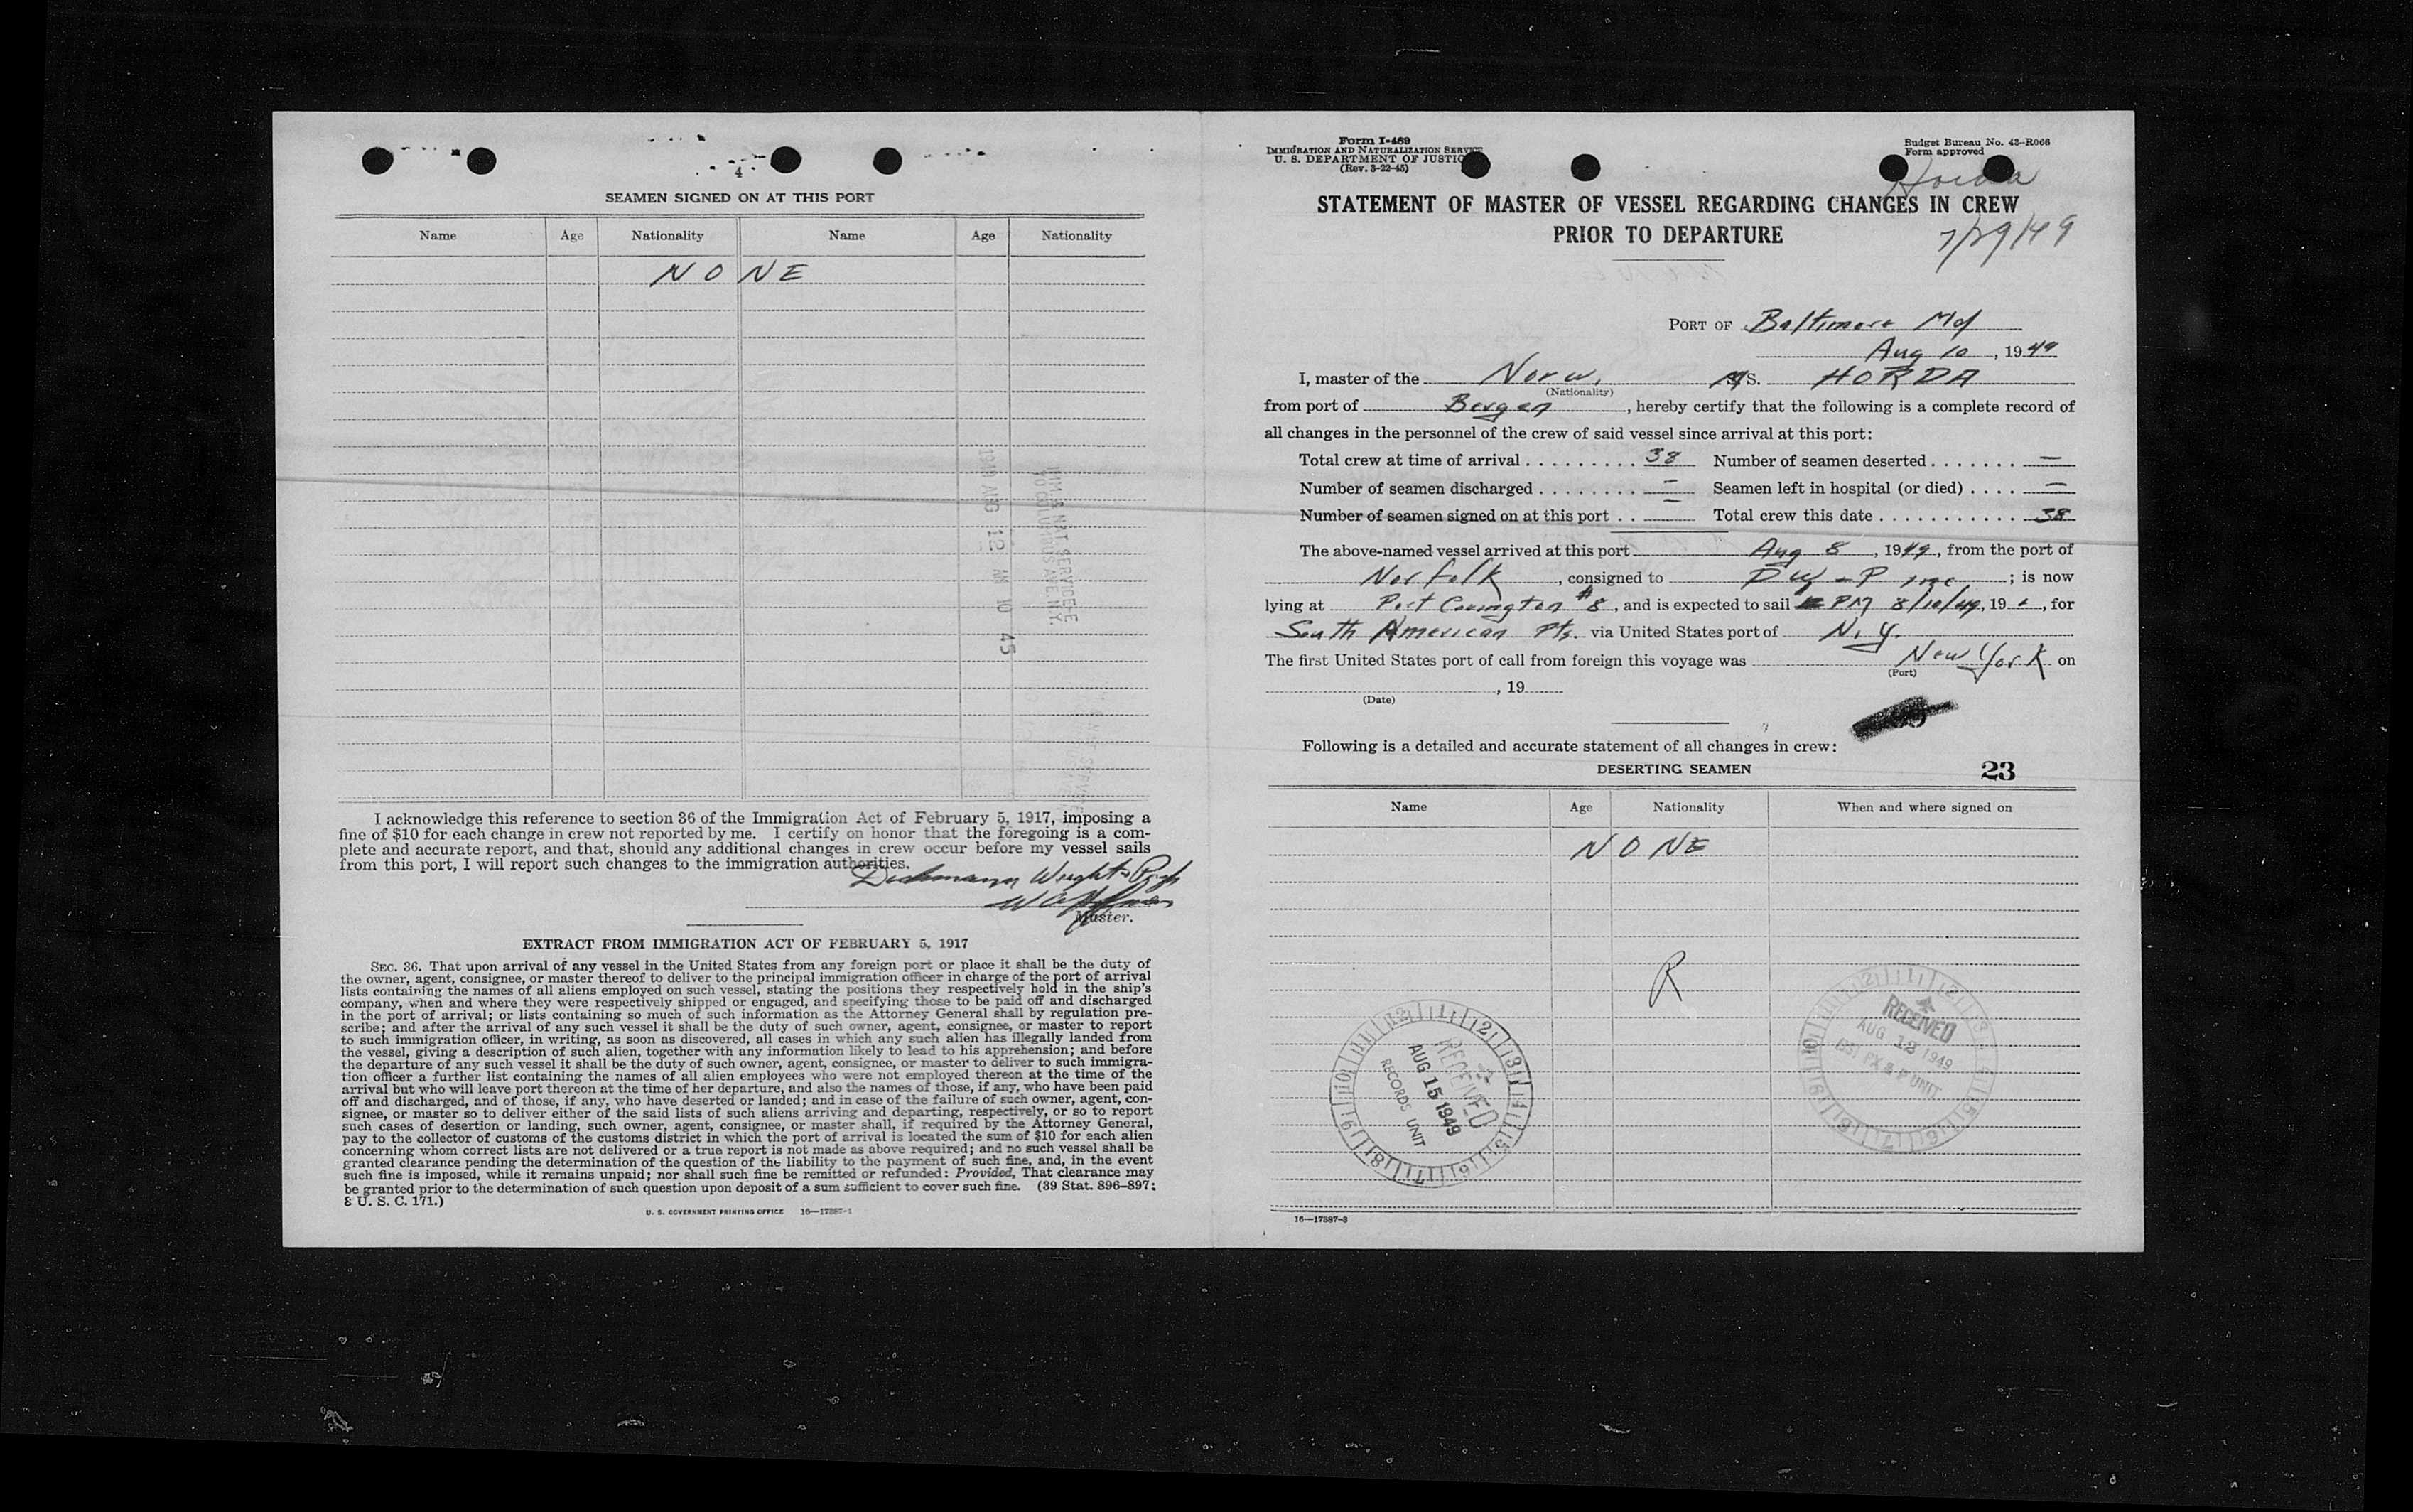 4
SEAMEN SIGNED ON AT THIS PORT
Name Age Nationality Name Age Nationality
NONE
I acknowledge this reference to section 36 of the Immigration Act of February 5, 1917, imposing a
fine of $10 for each change in crew not reported by me. I certify on honor that the foregoing is a com-
plete and accurate report, and that, should any additional changes in crew occur before my vessel sails
from this port, I will report such changes to the immigration authorities.
Master.
EXTRACT FROM IMMIGRATION ACT OF FEBRUARY 5, 1917
SEC. 36. That upon arrival of any vessel in the United States from any foreign port or place it shall be the duty of
the owner, agent, consignee, or master thereof to deliver to the principal immigration officer in charge of the port of arrival
lists containing the names of all aliens employed on such vessel, stating the positions they respectively hold in the ship's
company, when and where they were respectively shipped or engaged, and specifying those to be paid off and discharged
in the port of arrival; or lists containing so much of such information as the Attorney General shall by regulation pre-
scribe; and after the arrival of any such vessel it shall be the duty of such owner, agent, consignee, or master to report
to such immigration officer, in writing, as soon as discovered, all cases in which any such alien has illegally landed from
the vessel, giving a description of such alien, together with any information likely to lead to his apprehension; and before
the departure of any such vessel it shall be the duty of such owner, agent, consignee, or master to deliver to such immigra-
tion officer a further list containing the names of all alien employees who were not employed thereon at the time of the
arrival but who will leave port thereon at the time of her departure, and also the names of those, if any, who have been paid
off and discharged, and of those, if any, who have deserted or landed; and in case of the failure of such owner, agent, con-
signee, or master so to deliver either of the said lists of such aliens arriving and departing, respectively, or so to report
such cases of desertion or landing, such owner, agent, consignee, or master shall, if required by the Attorney General,
pay to the collector of customs of the customs district in which the port of arrival is located the sum of $10 for each alien
concerning whom correct lists are not delivered or a true report is not made as above required; and no such vessel shall be
granted clearance pending the determination of the question of the liability to the payment of such fine, and, in the event
such fine is imposed, while it remains unpaid; nor shall such fine be remitted or refunded: Provided, That clearance may
be granted prior to the determination of such question upon deposit of a sum sufficient to cover such fine. (39 Stat. 896–897;
8 U. S. C. 171.)
U. S. GOVERNMENT PRINTING OFFICE 16—17387-1
Form I-489
IMMIGRATION AND NATURALIZATION SERVICE
U. S. DEPARTMENT OF JUSTIC
(Rev. 3-22-45)
Budget Bureau No. 43-R066
Form approved
Horda
7/29/49
STATEMENT OF MASTER OF VESSEL REGARDING CHANGES IN CREW
PRIOR TO DEPARTURE
PORT OF Baltimore Md
Aug 10, 1949
I, master of the Norw. M/S. HORDA
(Nationality)
from port of Bergen, hereby certify that the following is a complete record of
all changes in the personnel of the crew of said vessel since arrival at this port:
Total crew at time of arrival . . . . . . . . . 38 Number of seamen deserted . . . . . . . —
Number of seamen discharged . . . . . . . . — Seamen left in hospital (or died) . . . . —
Number of seamen signed on at this port . . — Total crew this date . . . . . . . . . . . . 38
The above-named vessel arrived at this port Aug 8, 1949, from the port of
Norfolk, consigned to DW-P inc; is now
lying at Port Covington #8, and is expected to sail PM 8/10/49, 19, for
South American Pts. via United States port of N.Y.
The first United States port of call from foreign this voyage was New York on
(Port)
, 19
(Date)
Following is a detailed and accurate statement of all changes in crew:
DESERTING SEAMEN
23
Name Age Nationality When and where signed on
NONE
R
RECEIVED
AUG 15 1949
RECORDS UNIT
RECEIVED
AUG 12 1949
16—17387-3